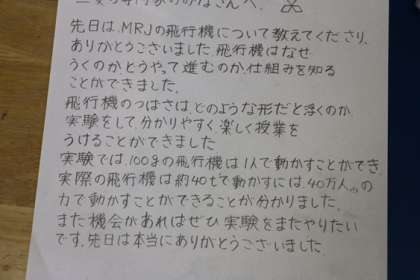 先日は、MRJの飛行機について教えてくださり、
ありがとうございました。飛行機はなぜ
うくのか、どうやって進むのか、仕組みを知る
ことができました。
飛行機のつばさは、どのような形だと浮くのか、
実験をして、分かりやすく、楽しく授業を
うけることができました
実験では、100gの飛行機は1人で動かすことができ、
実際の飛行機は約40tで動かすには、40万人の
力で動かすことができることが分かりました。
また機会があればぜひ実験をまたやりたい
です。先日は本当にありがとうございました。